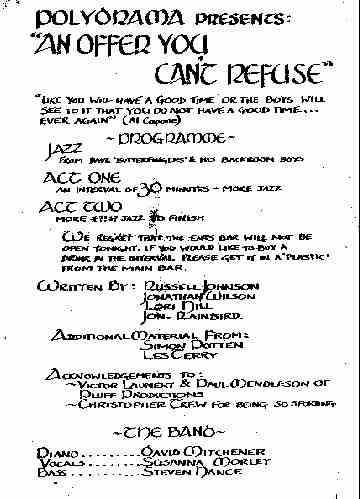 POLYDRAMA PRESENTS:
"AN OFFER YOU
CAN'T REFUSE"
"LIKE YOU WILL HAVE A GOOD TIME OR THE BOYS WILL
SEE TO IT THAT YOU DO NOT HAVE A GOOD TIME...
EVER AGAIN" (Al Capone)
~PROGRAMME~
JAZZ
FROM DAVE 'BUTTERFINGERS' & HIS BACKROOM BOYS
ACT ONE
AN INTERVAL OF 30 MINUTES - MORE JAZZ
ACT TWO
MORE JAZZ TO FINISH
WE REGRET THAT THE ENTS BAR WILL NOT BE
OPEN TONIGHT. IF YOU WOULD LIKE TO BUY A
DRINK IN THE INTERVAL PLEASE GET IT IN A 'PLASTIC'
FROM THE MAIN BAR.
WRITTEN BY: RUSSELL JOHNSON
JONATHAN WILSON
LORI HILL
JON RAINBIRD.
ADDITIONAL MATERIAL FROM:
SIMON POTTEN
LES CERRY
ACKNOWLEDGEMENTS TO:
~VICTOR LAURENT & PAUL MENDLESON OF
PUFF PRODUCTIONS
~CHRISTOPHER CREW FOR BEING SO
~THE BAND~
PIANO.........DAVID MITCHENER
VOCALS........SUSANNA MORLEY
BASS..........STEVEN HANCE